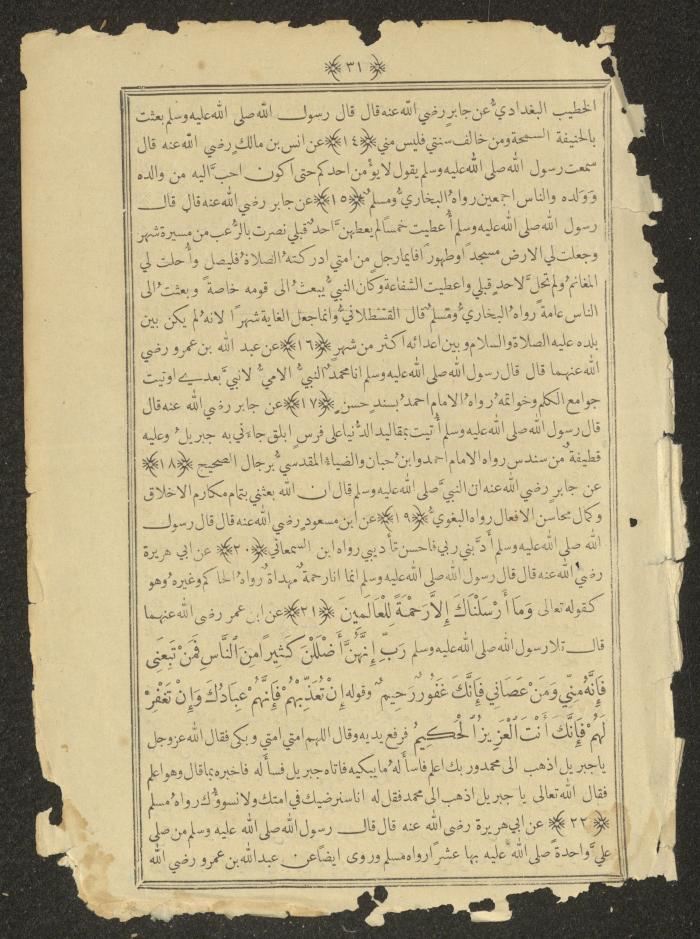 ﴿٣١﴾
الخطيب البغداديُّ عن جابرٍ رضي الله عنه قال قال رسول الله صلى الله عليه وسلم بعثت
بالحنيفة السمحة ومن خالف سنتي فليس مني ﴿١٤﴾ عن انس بن مالكٍ رضي الله عنه قال
سمعت رسول الله صلى الله عليه وسلم يقول لايؤمن احدكم حتى اكون احبَّ اليه من والده
وَوَلده والناس اجمعين رواهُ البخاريُّ ومسلمٌ ﴿١٥﴾ عن جابر رضي الله عنه قال قال
رسول الله صلى الله عليه وسلم أُعطيت خمساً لم يعطهنَّ احدٌ قبلي نصرت بالرُّعب من مسيرة شهر
وجعلت لي الارض مسجداً وطهوراً فايما رجل من امتي ادركتهُ الصلاةُ فليصل وأُحلت لي
المغانمُ ولم تحلَّ لاحدٍ قبلي واعطيت الشفاعة وكان النبيُّ يبعثُ الى قومه خاصةً وبعثتُ الى
الناس عامةً رواهُ البخاريُّ ومسلمٌ قال القسطلانيُّ وانما جعل الغاية شهراً لانهُ لم يكن بين
بلده عليه الصلاة والسلام وبين اعدائه اكثر من شهرٍ ﴿١٦﴾ عن عبد الله بن عمرو رضي
الله عنهما قال قال رسول الله صلى الله عليه وسلم انا محمدٌ النبيُّ الاميُّ لانبيَّ بعدي اوتيت
جوامع الكلم وخواتمهُ رواهُ الامام احمدُ بسندٍ حسنٍ ﴿١٧﴾ عن جابر رضي الله عنه قال
قال رسول الله صلى الله عليه وسلم أُتيت بمقاليد الدُّنيا على فرسٍ ابلق جاءني به جبريلُ وعليه
قطيفةٌ من سندس رواه الامام احمد وابنُ حبان والضياءُ المقدسيُّ برجال الصحيح ﴿١٨﴾
عن جابرٍ رضي الله عنه ان النبيَّ صلى الله عليه وسلم قال ان الله بعثني بتمام مكارم الاخلاق
وكمال محاسن الافعال رواه البغويُّ ﴿١٩﴾ عن ابن مسعودٍ رضي الله عنه قال قال رسول
الله صلى الله عليه وسلم أَدَّبني ربي فاحسن تأديبي رواه ابن السمعاني ﴿٢٠﴾ عن ابي هريرة
رضي الله عنه قال قال رسول الله صلى الله عليه وسلم انما انا رحمةٌ مهداةٌ رواهُ الحاكم وغيرهُ وهو
كقوله تعالى وَمَا أَرْسَلْنَاكَ إِلاَّ رَحْمَةً لِلْعَالَمِينَ ﴿٢١﴾ عن ابن عمر رضي الله عنهما
قال تلا رسول الله صلى الله عليه وسلم رَبِّ إِنَّهُنَّ أَضْلَلْنَ كَثِيراً مِنَ ٱلنَّاسِ فَمَنْ تَبِعَنِي
فَإِنَّهُ مِنِّي وَمَنْ عَصَانِي فَإِنَّكَ غَفُورٌ رَحِيمٌ وقوله إِنْ تُعَذِّبْهُمْ فَإِنَّهُمْ عِبَادُكَ وَإِنْ تَغْفِرْ
لَهُمْ فَإِنَّكَ أَنْتَ ٱلْعَزِيزُ ٱلْحَكِيمُ فرفع يديه وقال اللهم امتي امتي وبكى فقال الله عز وجل
ياجبريل اذهب الى محمد وربك اعلم فاسأَلهُ مايبكيه فاتاه جبريل فسأَله فاخبره بما قال وهو اعلم
فقال الله تعالى يا جبريل اذهب الى محمد فقل له انا سنرضيك في امتك ولانسوؤُك رواهُ مسلم
﴿٢٢﴾ عن ابي هريرة رضي الله عنه قال قال رسول الله صلى الله عليه وسلم من صلى
عليَّ واحدةً صلى الله عليه بها عشراً رواه مسلم وروى ايضاً عن عبد الله بن عمرو رضي الله